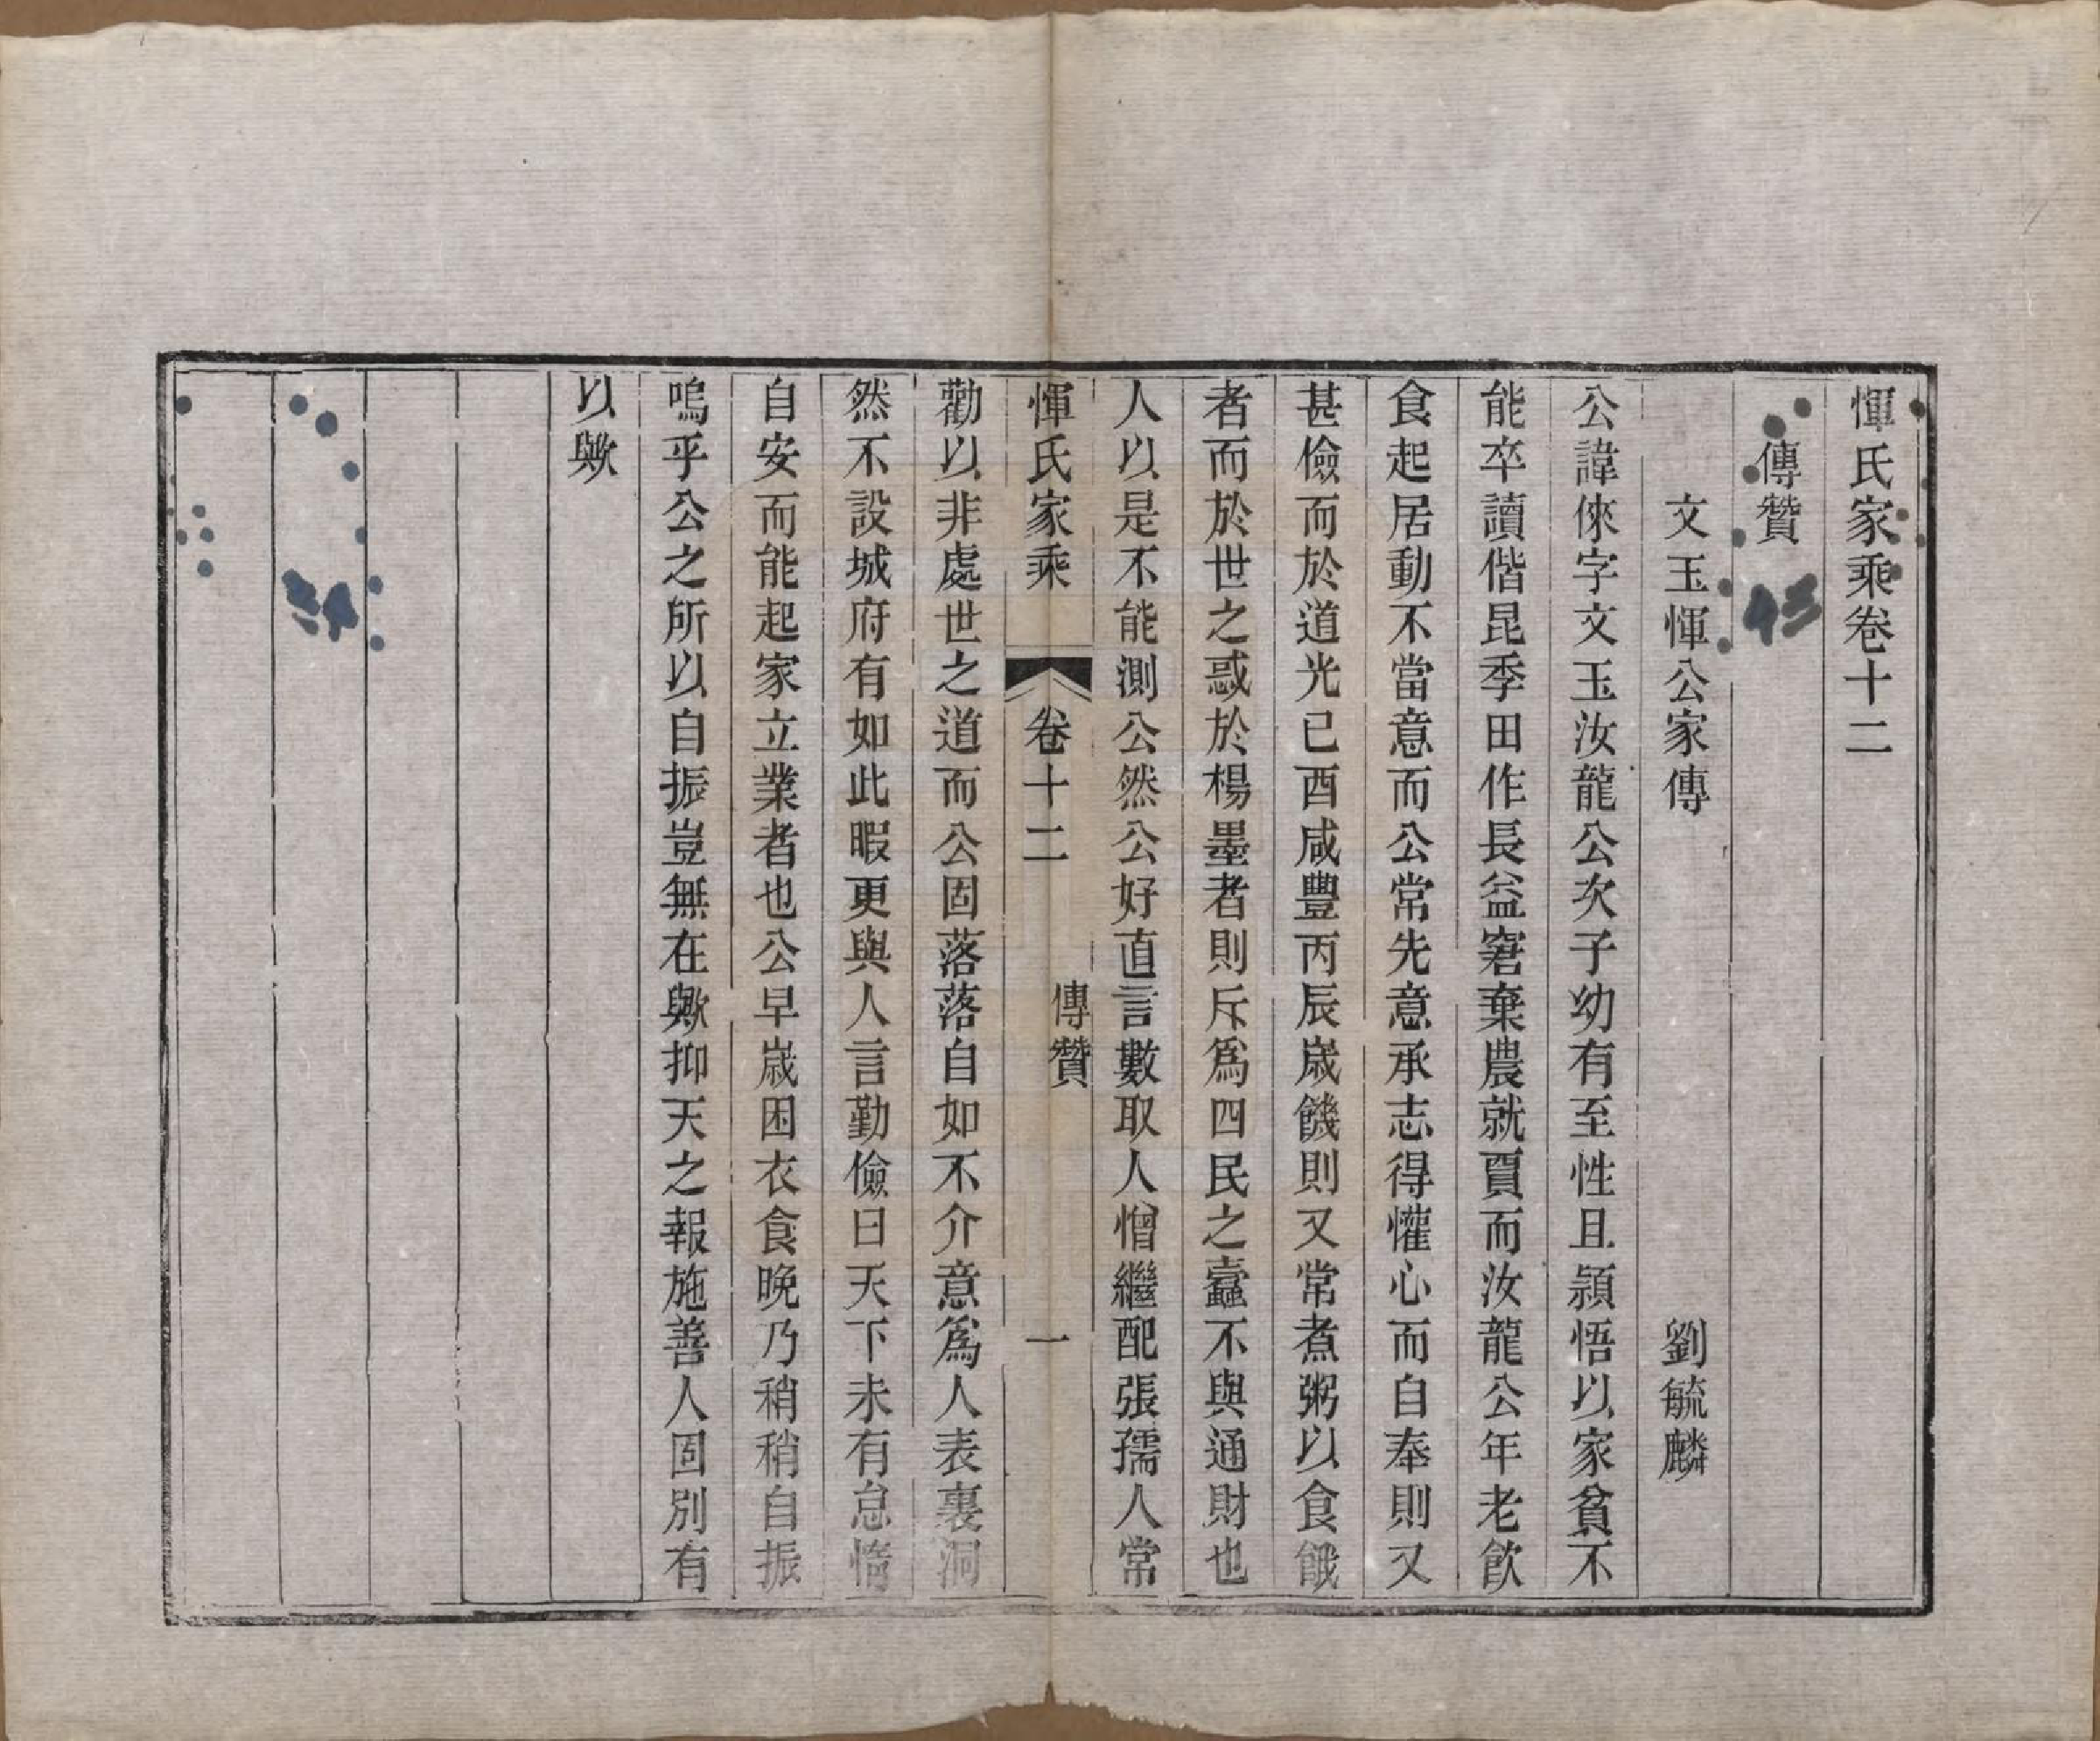 惲氏家乘卷十二
傳贊
文玉惲公家傳 劉毓麟
公諱倈字文玉汝龍公次子幼有至性且穎悟以家貧不
能卒讀偕昆季田作長益窘棄農就賈而汝龍公年老飲
食起居動不當意而公常先意承志得懽心而自奉則又
甚儉而於道光已酉咸豐丙辰歲饑則又常煮粥以食餓
者而於世之惑於楊墨者則斥爲四民之蠧不與通財也
人以是不能測公然公好直言數取人憎繼配張孺人常
惲氏家乘 卷十二 傳贊 一
勸以非處世之道而公固落落自如不介意爲人表裏洞
然不設城府有如此暇更與人言勤儉曰天下未有怠惰
自安而能起家立業者也公早歲困衣食晚乃稍稍自振
嗚乎公之所以自振豈無在歟抑天之報施善人固別有
以歟